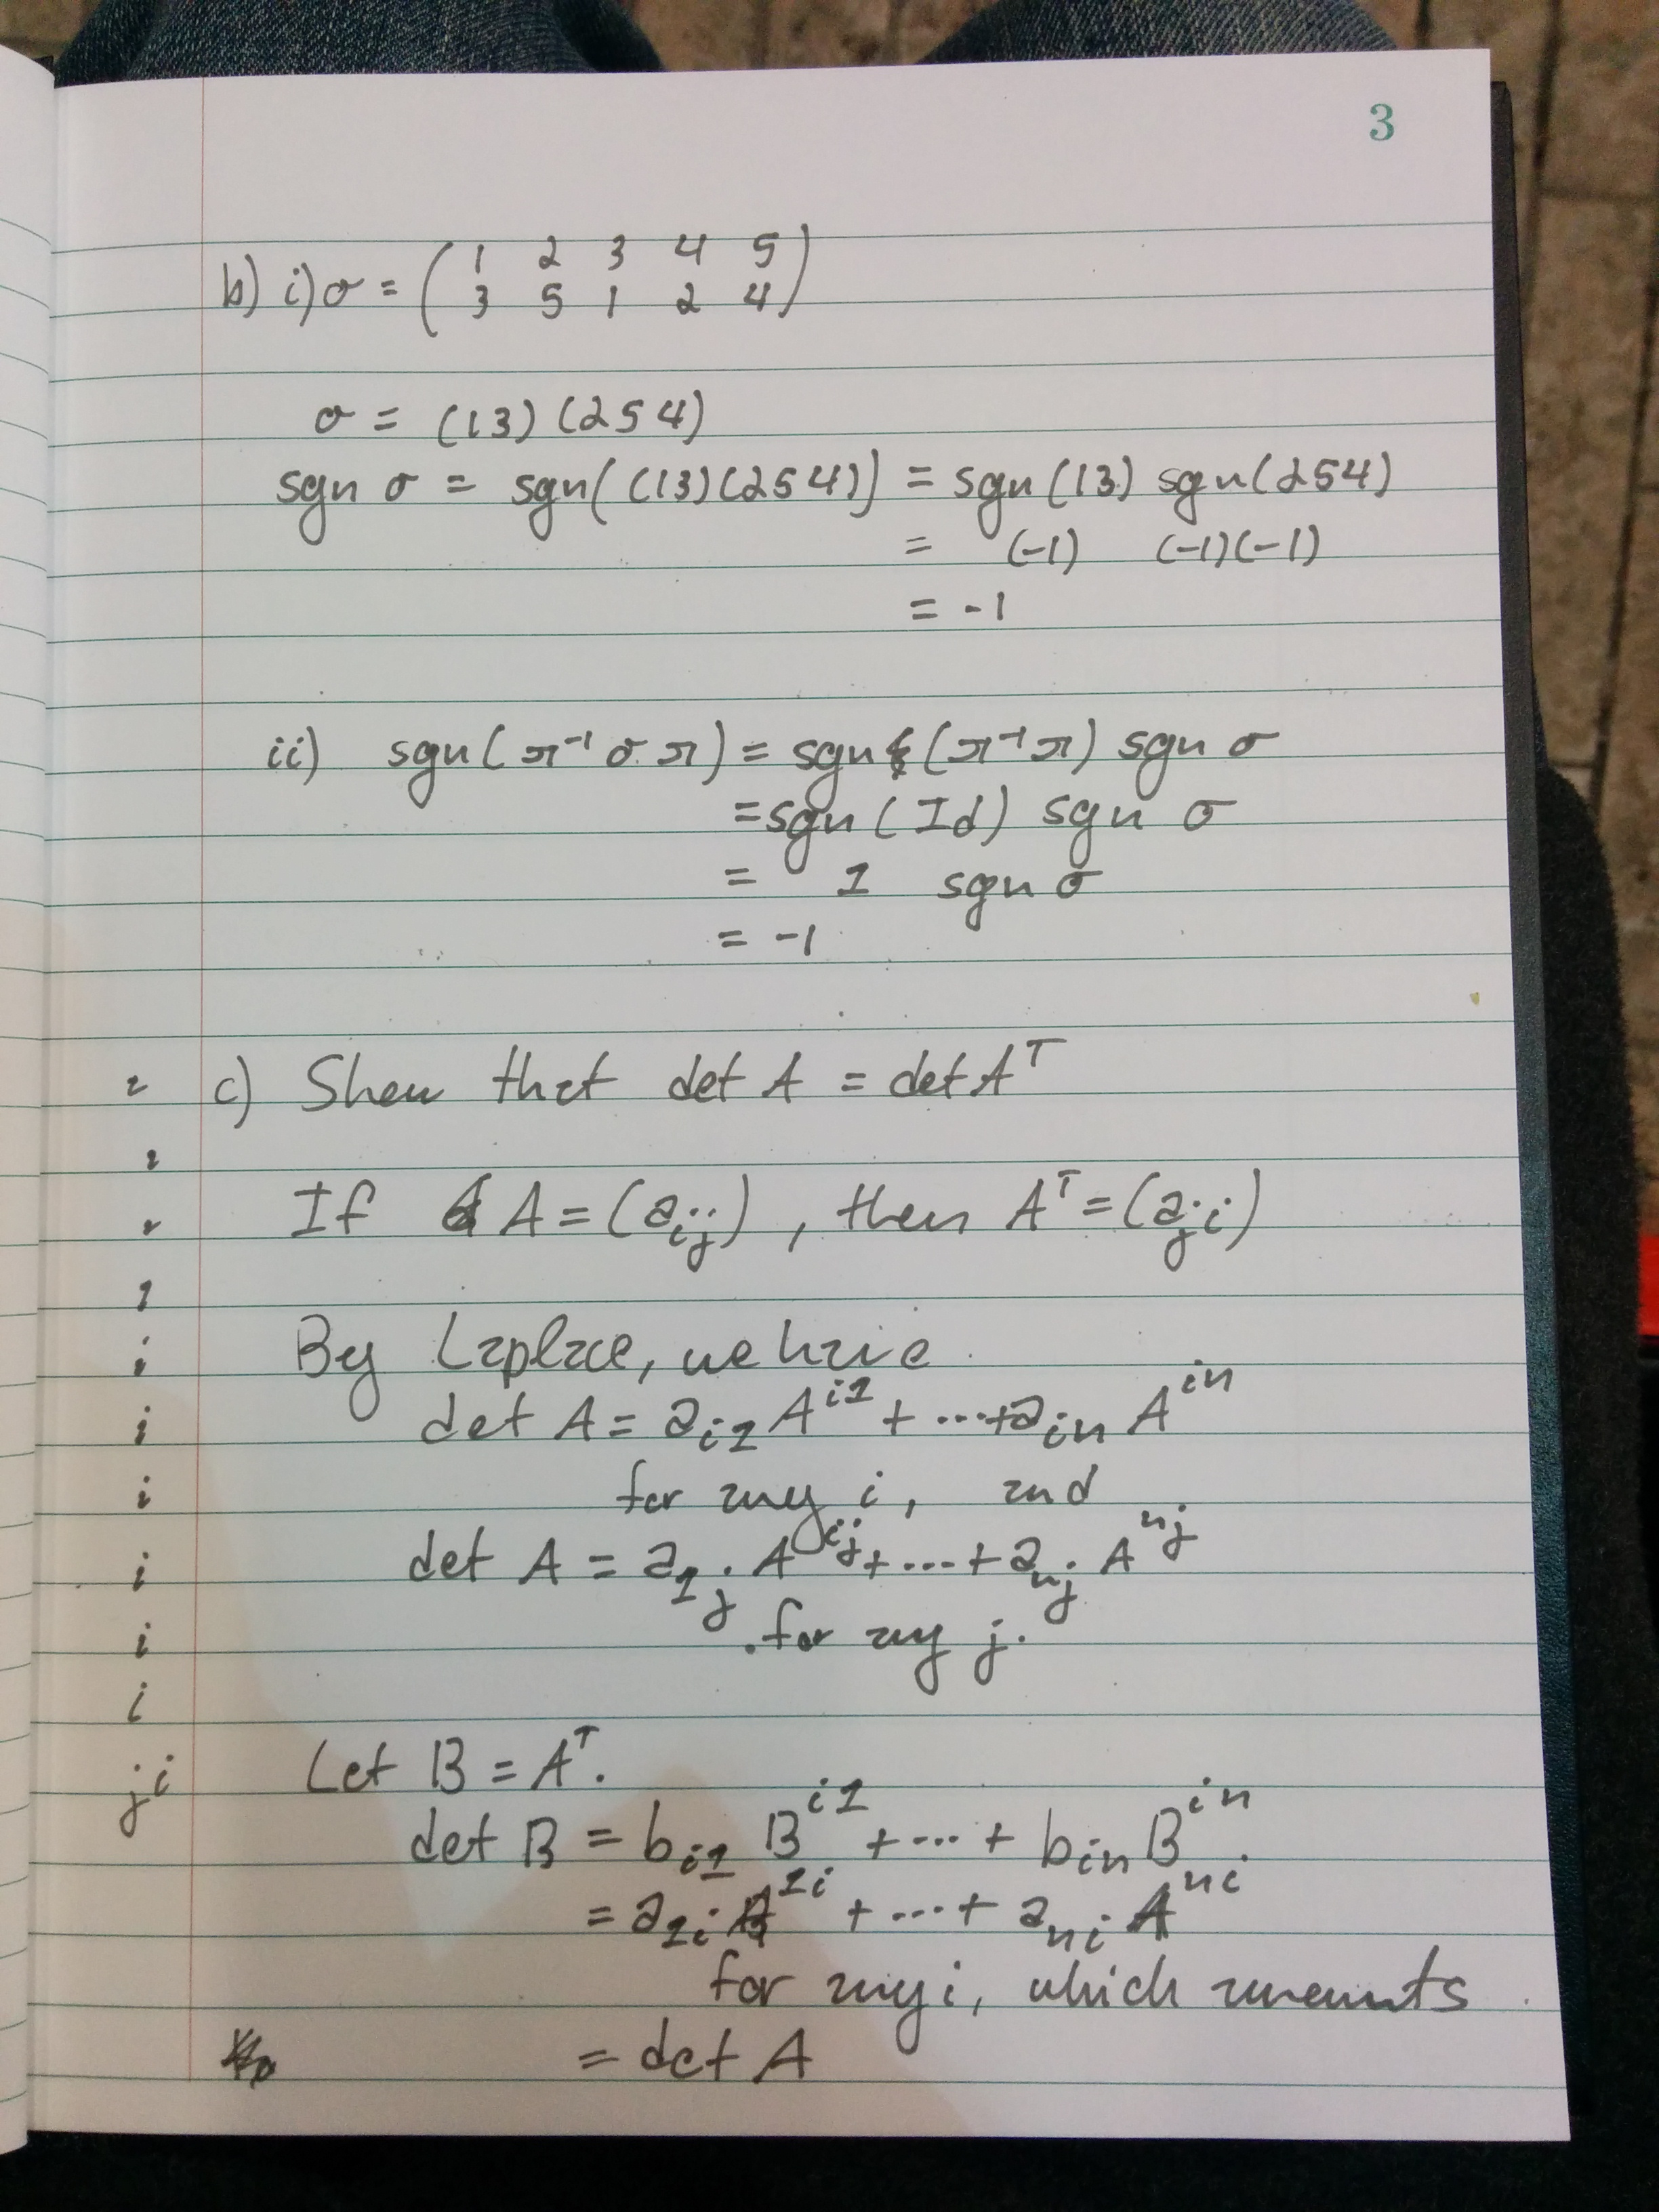 3
b) i) σ = ( 1 2 3 4 5
3 5 1 2 4 )
σ = (13)(254)
sgn σ = sgn((13)(254)) = sgn(13) sgn(254)
= (-1) (-1)(-1)
= -1
ii) sgn(π⁻¹σπ) = sgn(π⁻¹π) sgn σ
= sgn(Id) sgn σ
= 1 sgn σ
= -1
c) Show that det A = det Aᵀ
If A = (a_ij), then Aᵀ = (a_ji)
By Laplace, we have
det A = a_i1 A^i1 + ... + a_in A^in
for any i, and
det A = a_1j A^ij + ... + a_nj A^nj
for any j.
i
i
i
i
i
i
j i
Let B = Aᵀ.
det B = b_i1 B^i1 + ... + b_in B^in
= a_1i A^1i + ... + a_ni A^ni
for any i, which
= det A